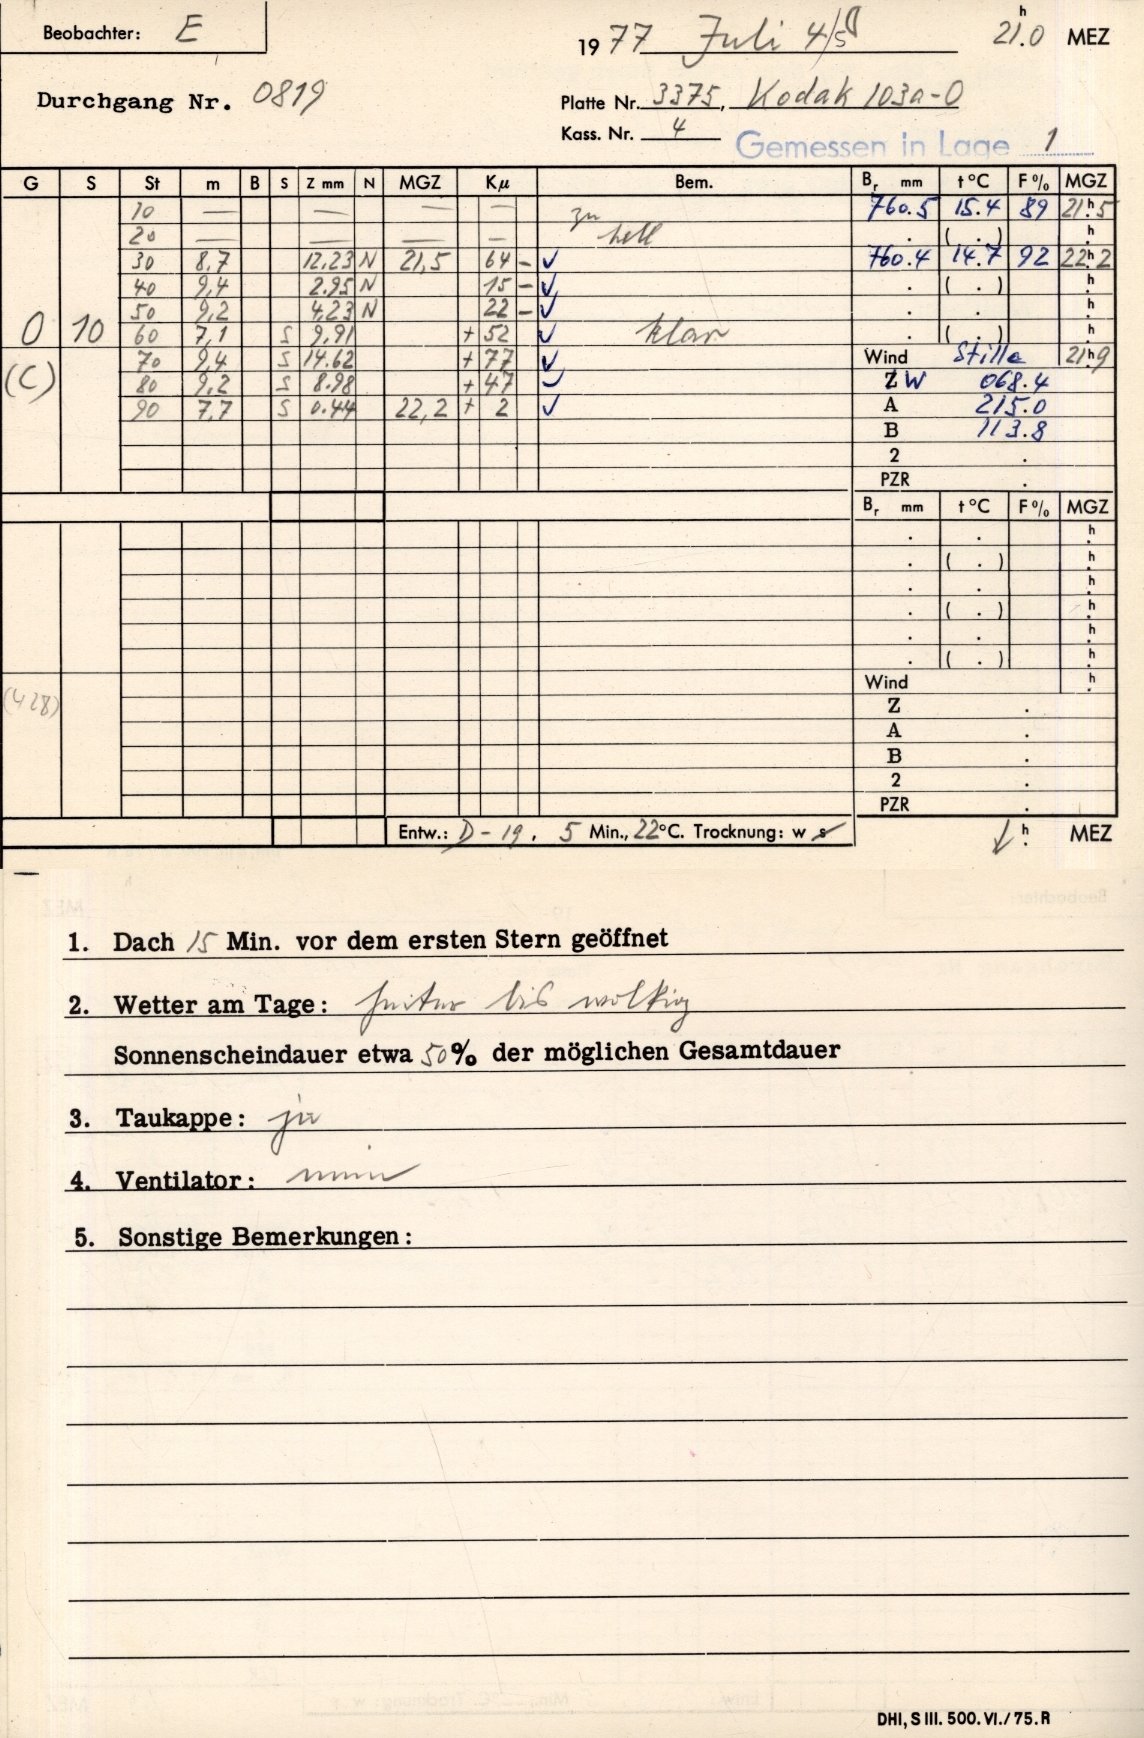 Beobachter: E
1977 Juli 4/5 21h.0 MEZ
Durchgang Nr. 0819
Platte Nr. 3375, Kodak 103a-O
Kass. Nr. 4
Gemessen in Lage 1
G S St m B S Z mm N MGZ Kµ Bem. Br mm t °C F % MGZ
10 — — — — zu 760.5 15.4 89 21h.5
20 — — — — hell . ( . ) h.
30 8,7 12.23 N 21,5 64 - ✓ 760.4 14.7 92 22h.2
40 9,4 2.95 N 15 - ✓ . ( . ) h.
50 9,2 4,23 N 22 - ✓ . . h.
0 10 60 7,1 S 9,91 + 52 ✓ klar . ( . ) h.
70 9,4 S 14.62 + 77 ✓ Wind Stille 21h.9
(C) 80 9,2 S 8.98 + 47 ✓ Z W 068.4
90 7,7 S 0.44 22,2 + 2 ✓ A 215.0
B 113.8
2 .
PZR .
Br mm t °C F % MGZ
. . h.
. ( . ) h.
. . h.
. ( . ) h.
. . h.
. ( . ) h.
Wind h.
(428) Z .
A .
B .
2 .
PZR .
Entw.: D-19, 5 Min., 22°C. Trocknung: w s h. MEZ
1. Dach 15 Min. vor dem ersten Stern geöffnet
2. Wetter am Tage: heiter bis wolkig
Sonnenscheindauer etwa 50% der möglichen Gesamtdauer
3. Taukappe: ja
4. Ventilator: nein
5. Sonstige Bemerkungen:
DHI, S III. 500. VI./75. R